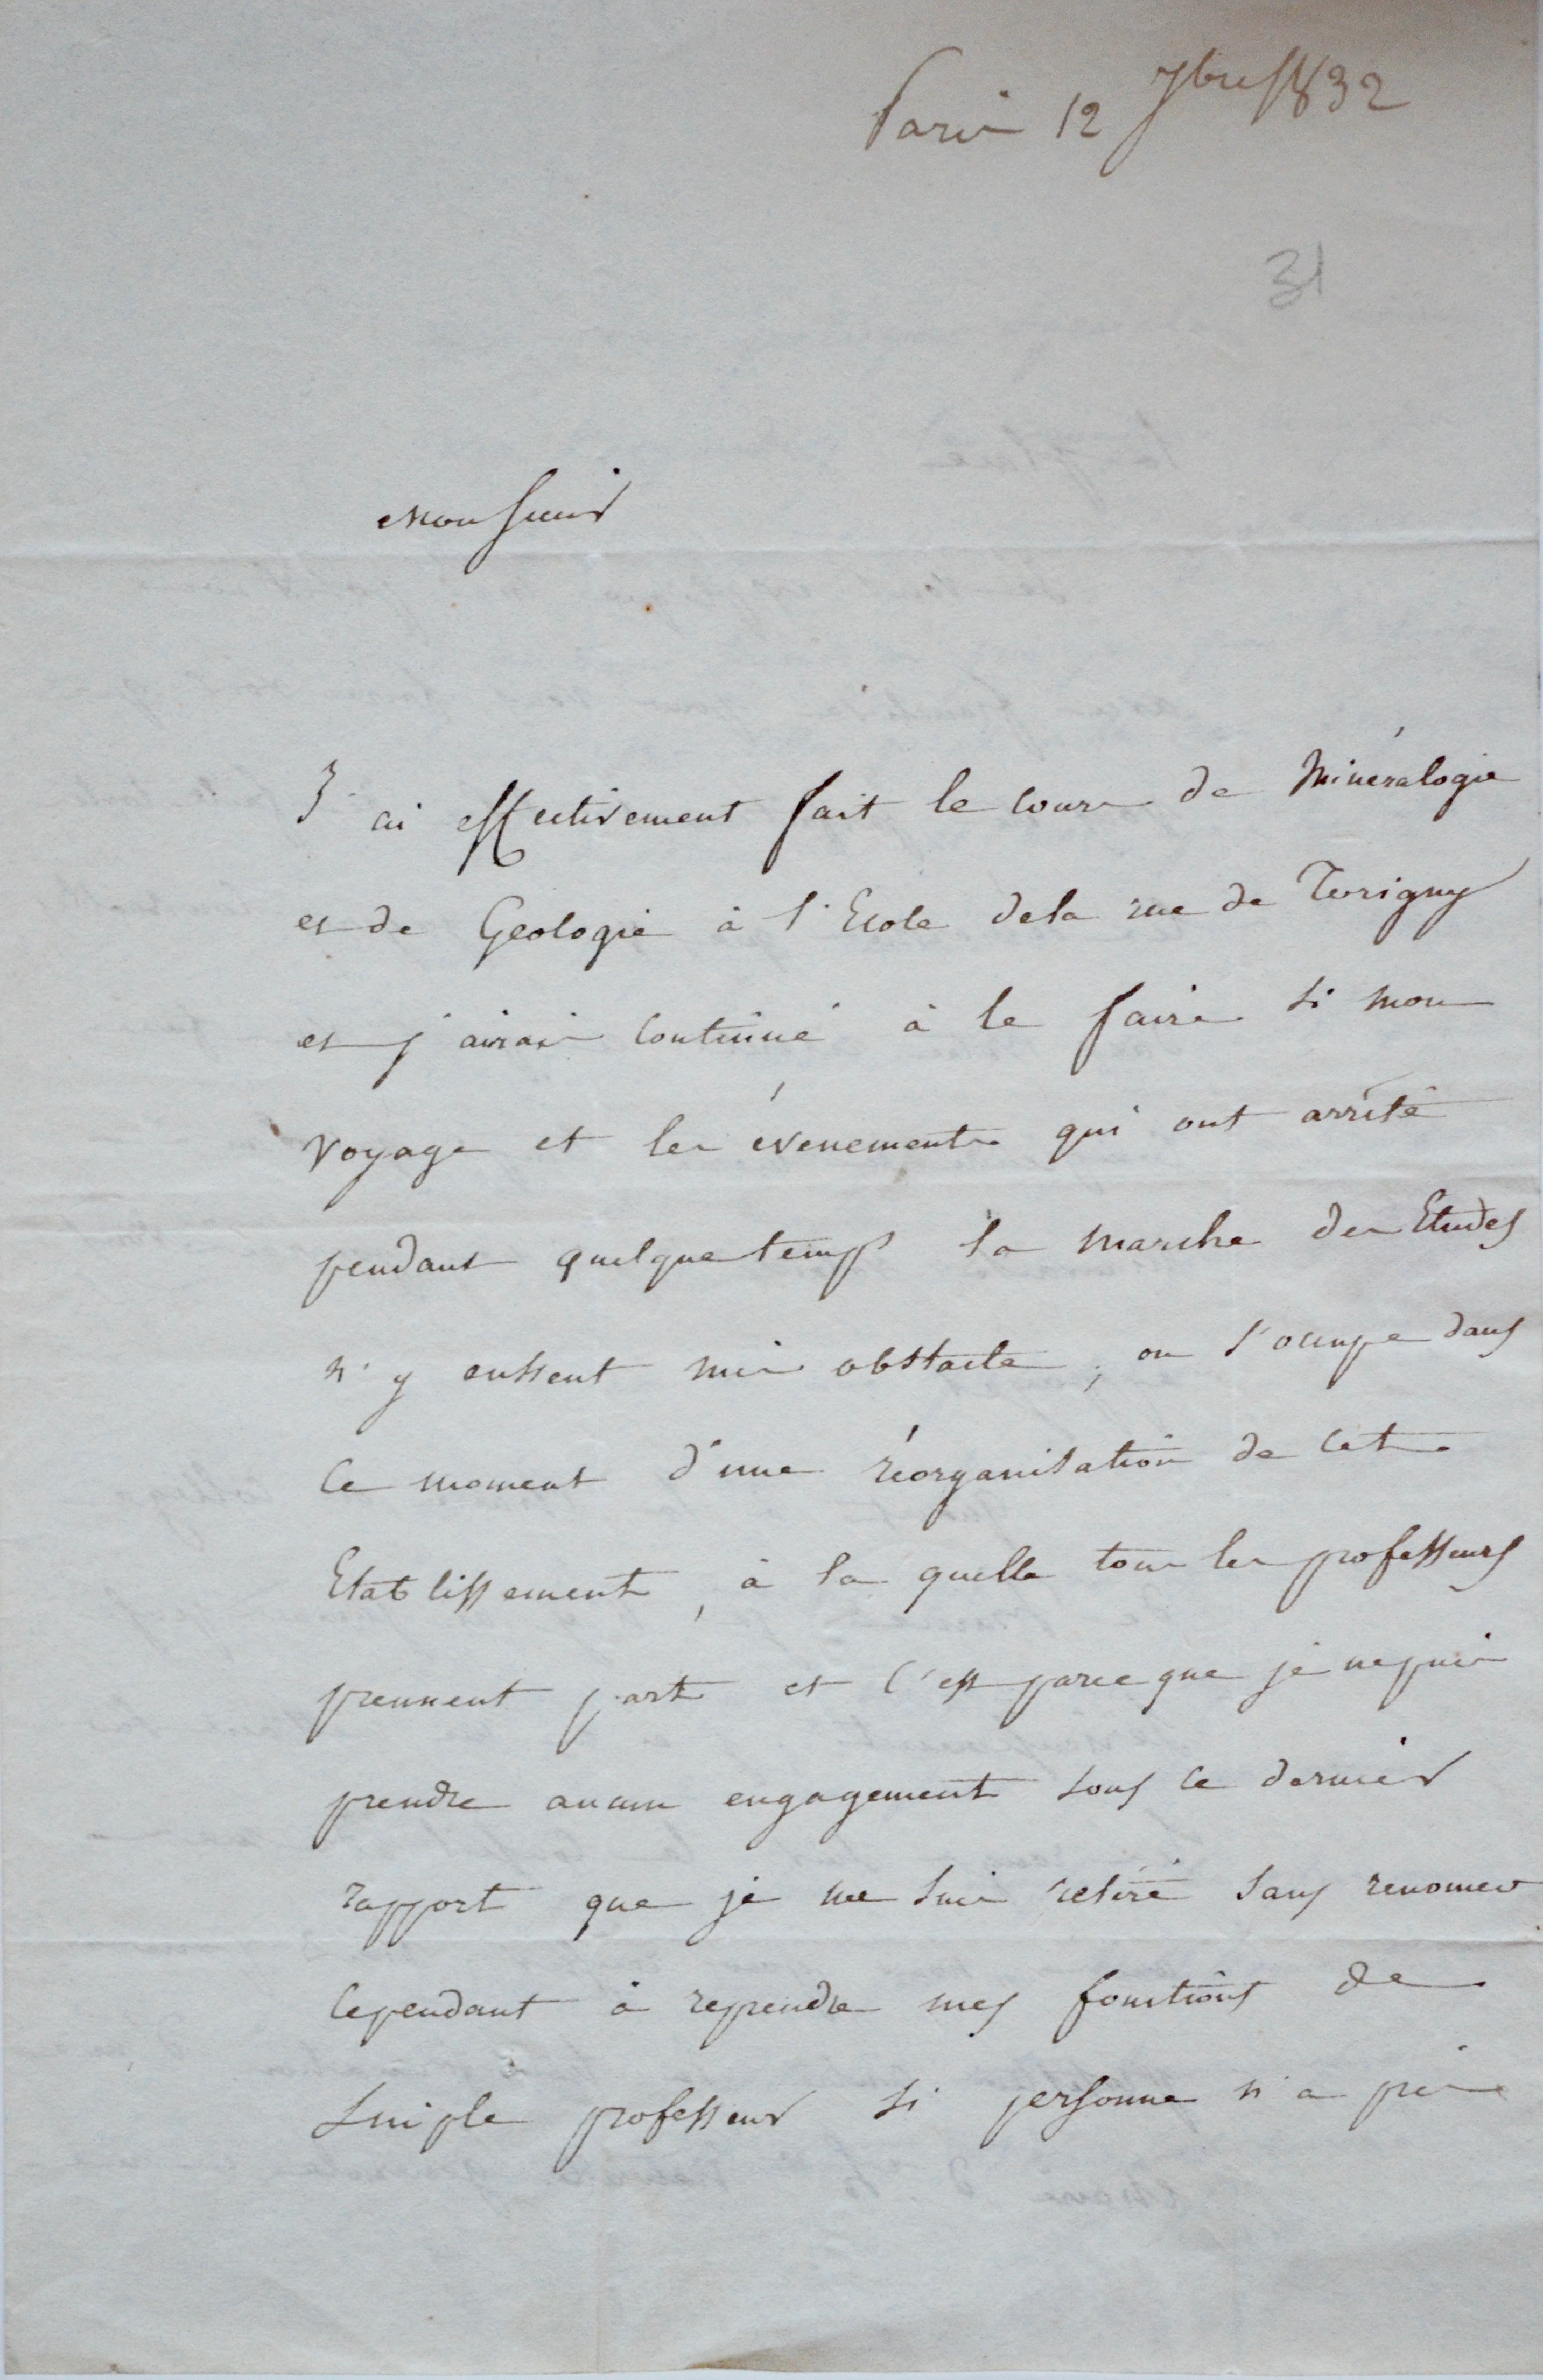 Paris 12 7bre 1832
31
Monsieur
J'ai effectivement fait le cours de Minéralogie
et de Geologie à l'Ecole dela rue de Torigny
et j'aurais continué à le faire si mon
voyage et les évenements qui ont arrêté
pendant quelque temps la marche des Etudes
n'y eussent mis obstacle, on s'occupe dans
ce moment d'une réorganisation de cet
Etablissement, à la quelle tous les professeurs
prennent part et c'est parce que je ne puis
prendre aucun engagement sous ce dernier
rapport que je me suis retiré sans renoncer
cependant à reprendre mes fonctions de
simple professeur si personne n'a pris